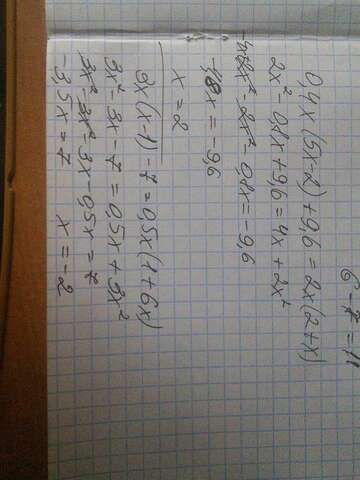 6 - 7 = 11
0,4x(5x-2)+9,6=2x(2+x)
2x²-0,8x+9,6=4x+2x²
2x²-2x²-0,8x=-9,6
-4,8x=-9,6
x=2
3x(x-1)-7=0,5x(1+6x)
3x²-3x-7=0,5x+3x²
3x²-3x²-3x-0,5x=7
-3,5x=7 x=-2